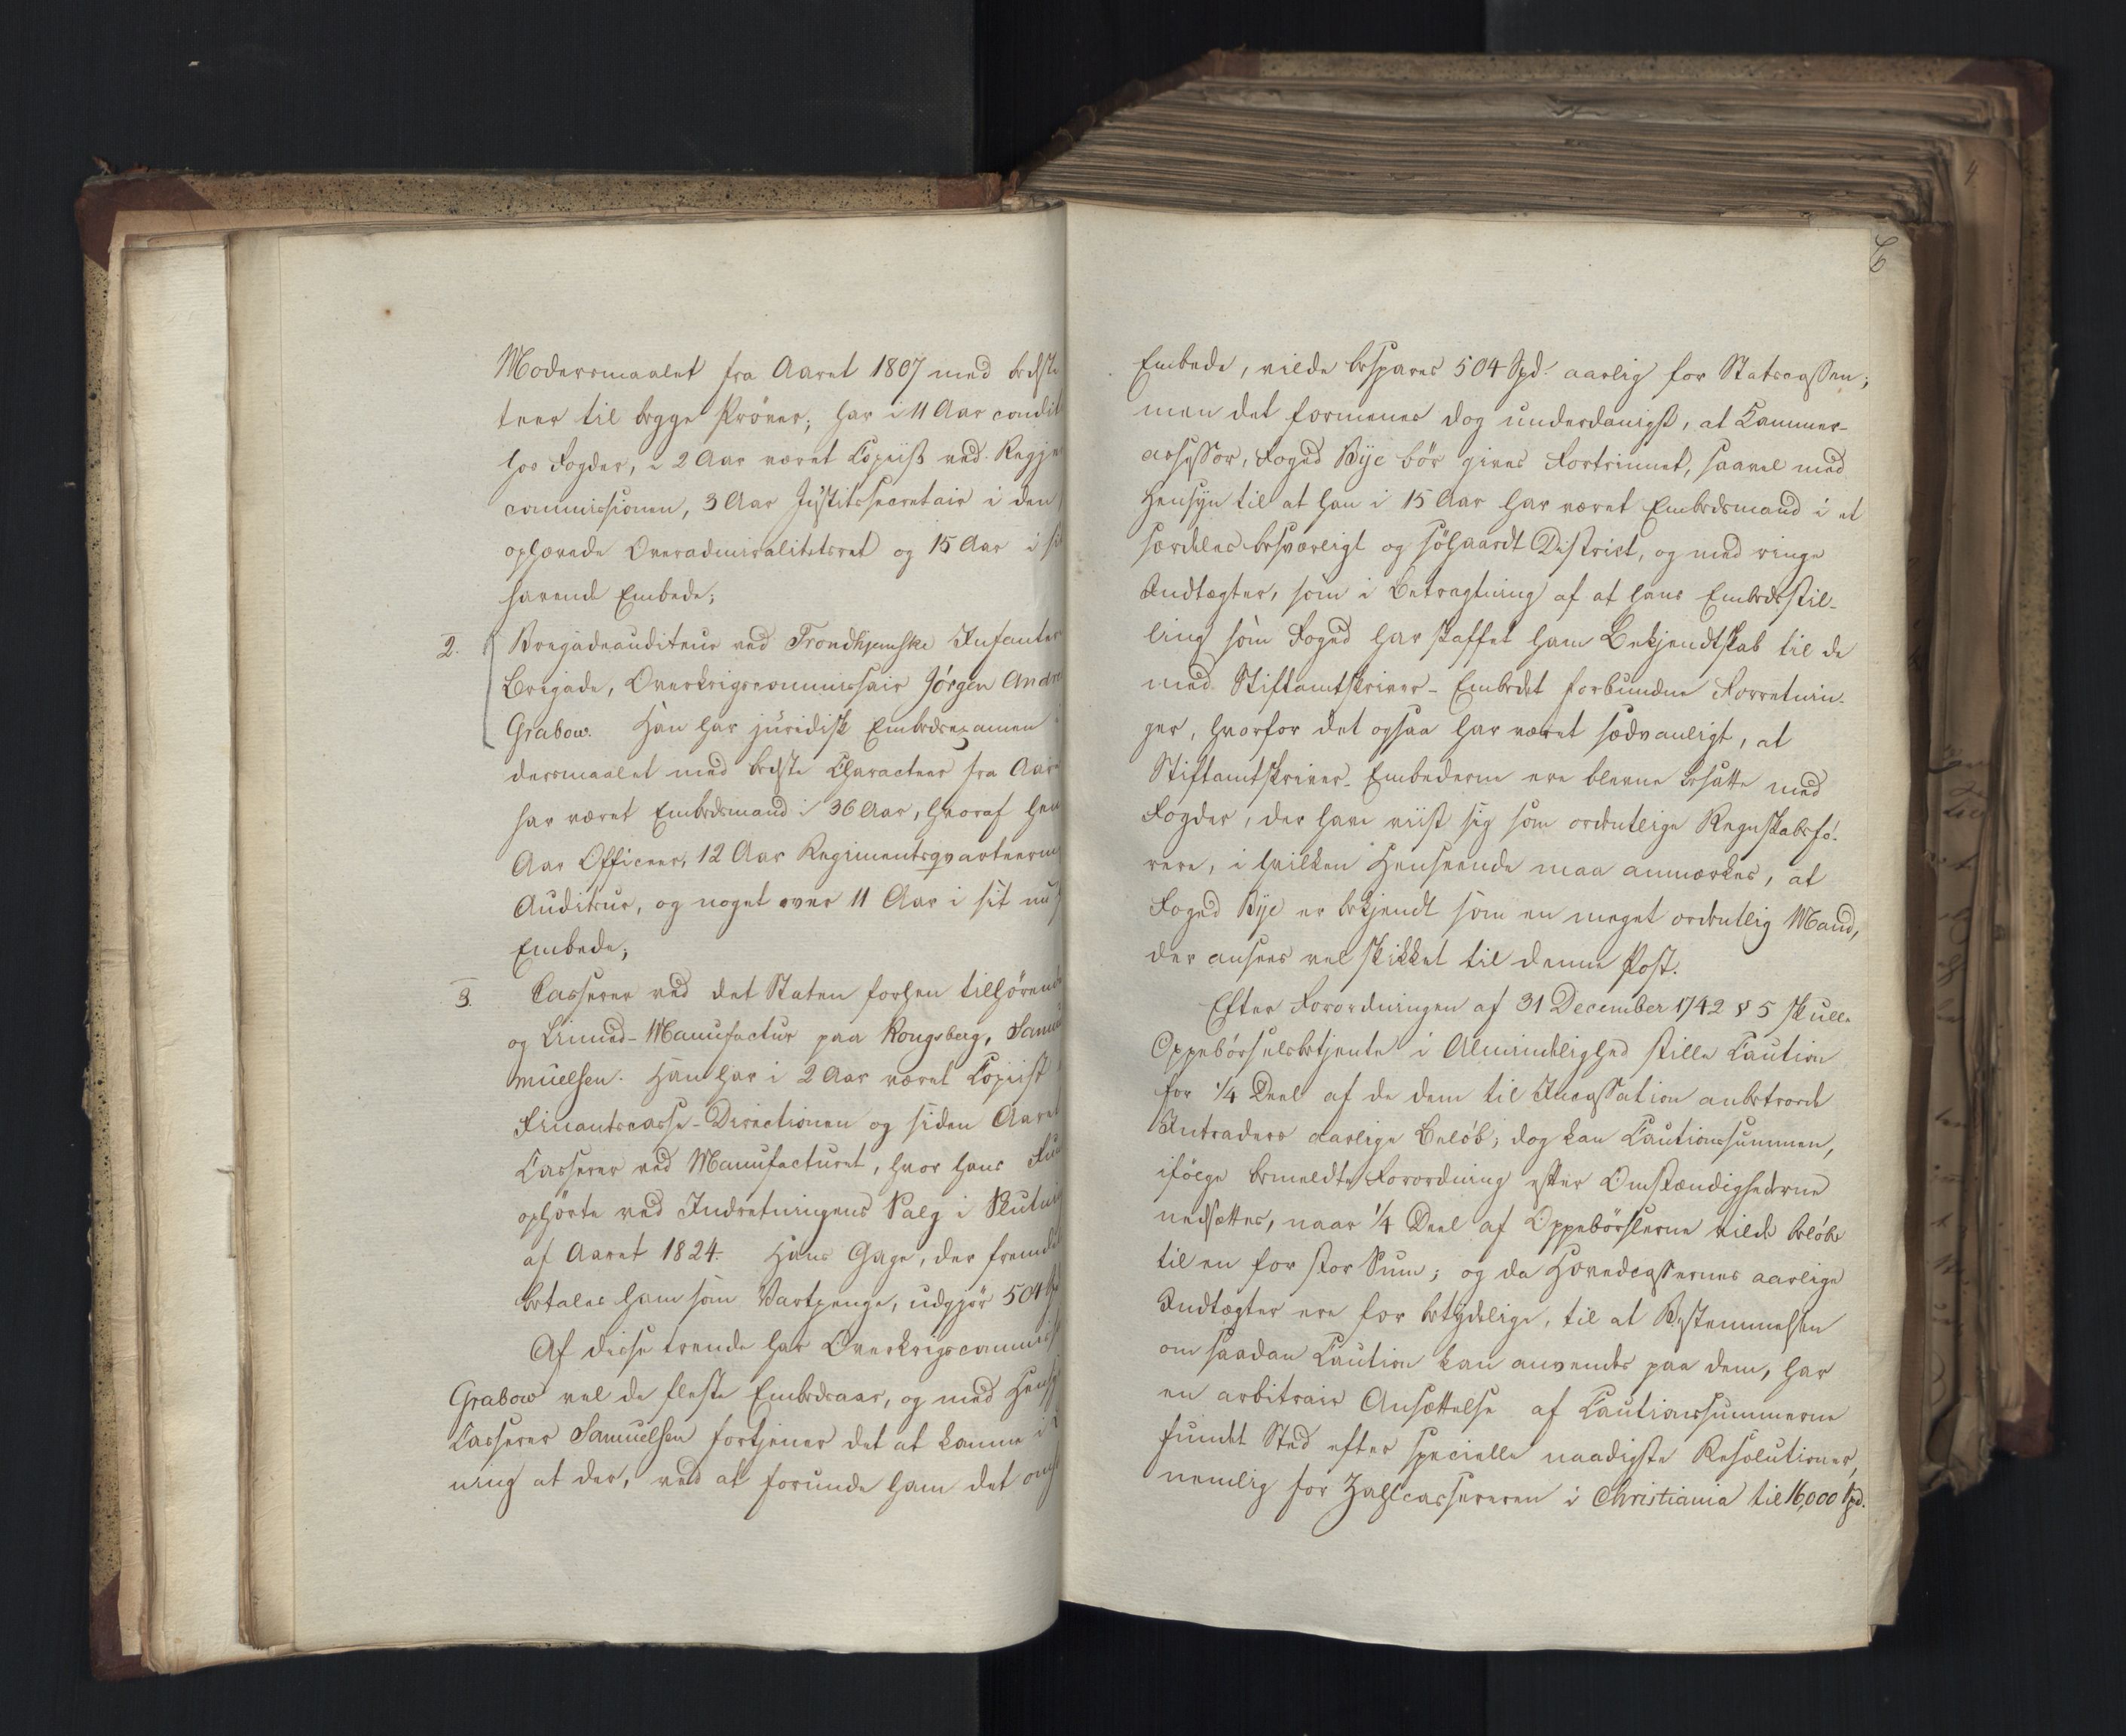 Modersmaalet fra Aaret 1807 med bedste
teer til begge Prøver; har i 11 Aar condit
hos Fogder, i 2 Aar været Copiist ved Regje
commissionen, 3 Aar Justitssecretair i den
ophævede Overadmiralitetsret og 15 Aar i si
havende Embede;
2. Brigadeauditeur ved Trondhjemske Infanter
Brigade, Overkrigscommissair Jörgen Andre
Grabow. Han har juridisk Embedsexamen i
dersmaalet med bedste Characteer fra Aare
har været Embedsmand i 36 Aar, hvoraf hen
Aar Officeer, 12 Aar Regimentsqvarteerm
Auditeur, og noget over 11 Aar i sit nu
Embede;
3. Casserer ved det Staten forhen tilhörende
og Linned-Manufactur paa Kongsberg, Samu
muelsen. Han har i 2 Aar været Copiist
Finantscasse-Directionen og siden Aaret
Casserer ved Manufacturet, hvor hans Fun
ophörte ved Indretningens Salg i Slutnin
af Aaret 1824. Hans Gage, der fremde
betales ham som Vartpenge, udgjör 504 Sp
Af disse trende har Overkrigscommiss
Grabow vel de fleste Embedsaar, og med Hensy
Casserer Samuelsen fortjener det at komme i
ning at der, ved at forunde ham det om
6
Embede, vilde bespares 504 Spd. aarlig for Statscassen;
men det formenes dog underdanigst, at Kammer-
assessor, Foged Bye bör gives Fortrinnet, saavel med
Hensyn til at han i 15 Aar har været Embedsmand i et
særdeles besværligt og District, og med ringe
Indtægter, som i Betragtning af at hans Embedsstil-
ling som Foged har skaffet ham Bekjendtskab til de
med Stiftamtskriver-Embedet forbundne Forretnin-
ger, hvorfor det ogsaa har været sædvanligt, at
Stiftamtskriver-Embederne ere blevne besatte med
Fogder, der have viist sig som ordentlige Regnskabsfö-
rere, i hvilken Henseende maa anmærkes, at
Foged Bye er bekjendt som en meget ordentlig Mand,
der ansees vel skikket til denne Post.
Efter Forordningen af 31 December 1742 § 5 skulle
Oppebörselsbetjente i Almindelighed stille Caution
for 1/4 Deel af de dem til Incassation anbetroede
Intraders aarlige Belöb; dog kan Cautionssummen,
ifölge bemeldte Forordning efter Omstændighederne
nedsættes, naar 1/4 Deel af Oppebörslerne vilde belöbe
til en for stor Sum; og da Hovedcassernes aarlige
Indtægter ere for betydelige, til at Bestemmelsen
om saadan Caution kan anvendes paa dem, har
en arbitrair Ansættelse af Cautionssummerne
fundet Sted efter specielle naadigste Resolutioner,
nemlig for Zahlcassereren i Christiania til 16,000 Spd.